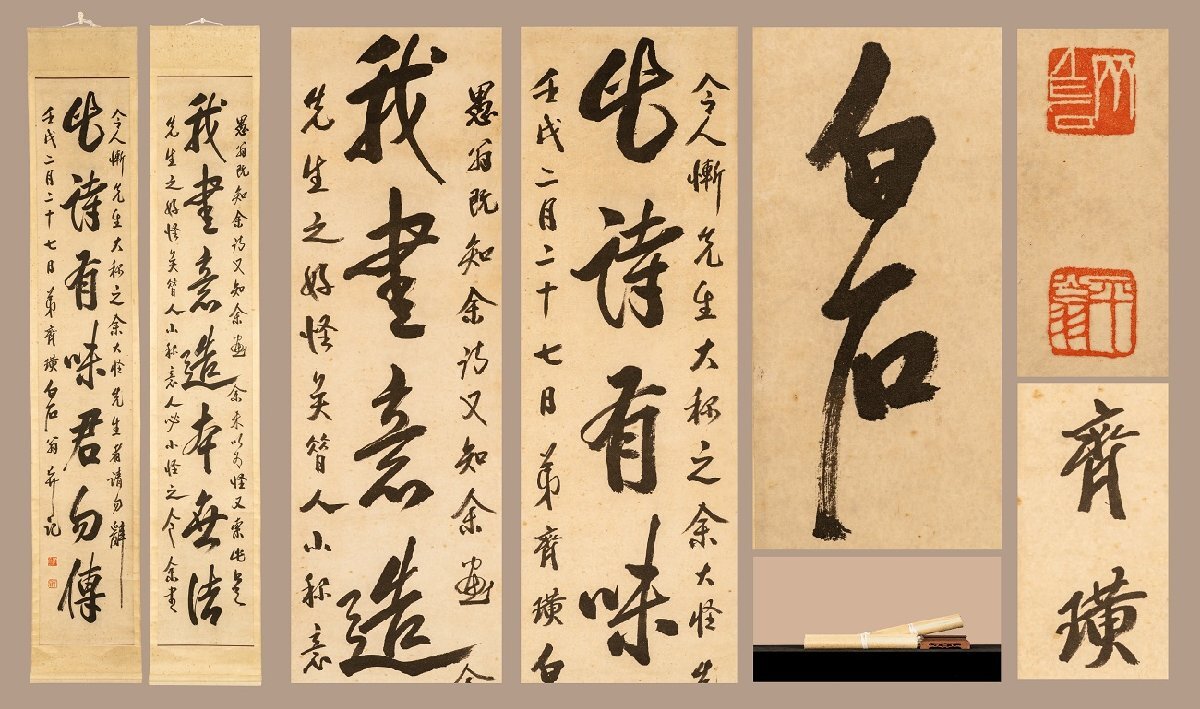 愚翁既知余詩又知余畫余來以為怪又索此足
我書意造本無法
先生之好怪矣昔人小称意人必小怪之今余書
令人慚先生大称之余大怪先生者請勿辭
此詩有味君勿傳
壬戌二月二十七日弟齊璜白石翁并記
愚翁既知余詩又知余畫余
我書意造
先生之好怪矣昔人小称意
令人慚先生大称之余大怪先
此詩有味
壬戌二月二十七日弟齊璜白
白石
齊璜